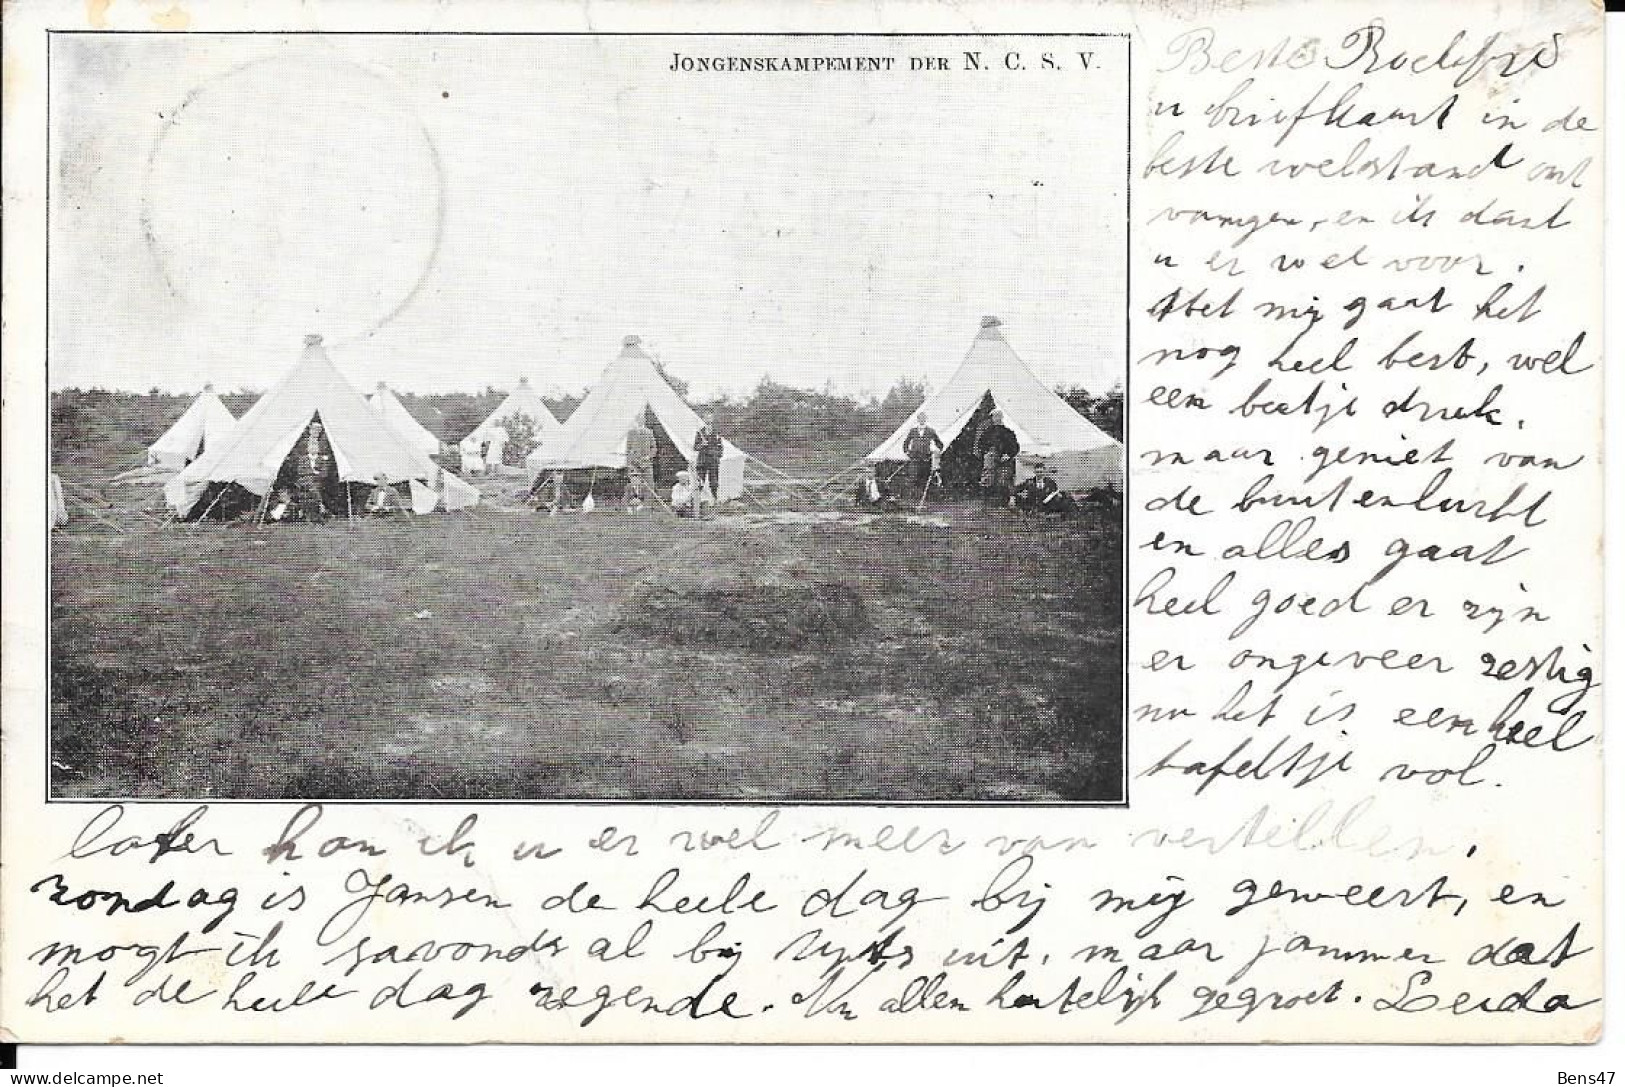 JONGENSKAMPEMENT DER N. C. S. V.
Beste
u briefkaart in de
beste welstand ont
vangen, en ik dank
u er wel voor.
Met mij gaat het
nog heel best, wel
een beetje druk,
maar geniet van
de buitenlucht
en alles gaat
heel goed er zijn
er ongeveer zestig
nu het is een heel
tafeltje vol.
later kan ik u er wel meer van vertellen,
zondag is Jansen de heele dag bij mij geweest, en
mogt ik savonds al bij uit, maar jammer dat
het de heele dag regende. Nu allen hartelijk gegroet. Leida
Bens47